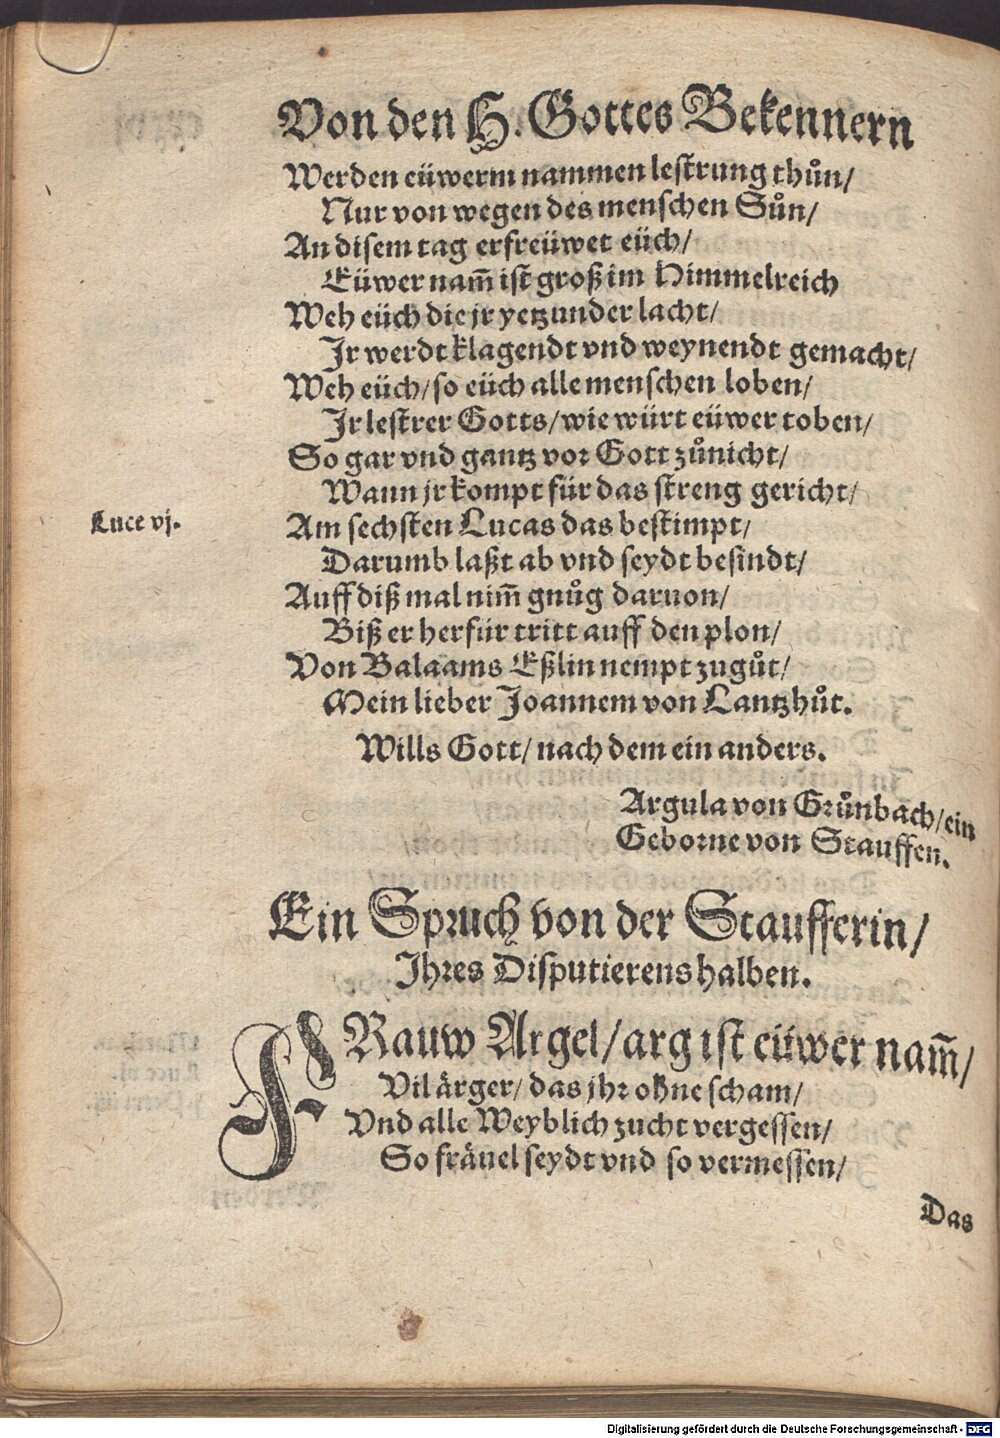 Von den H. Gottes Bekennern
Werden eüwerm nammen lestrung thůn/
Nur von wegen des menschen Sůn/
An disem tag erfreüwet eüch/
Eüwer nam̄ ist groß im Himmelreich
Weh eüch die jr yetzunder lacht/
Jr werdt klagendt vnd weynendt gemacht/
Weh eüch/ so eüch alle menschen loben/
Jr lestrer Gotts/ wie würt eüwer toben/
So gar vnd gantz vor Gott zůnicht/
Wann jr kompt für das streng gericht/
Luce vj.
Am sechsten Lucas das bestimpt/
Darumb laßt ab vnd seydt besindt/
Auff diß mal nim̄ gnůg daruon/
Biß er herfür tritt auff den plon/
Von Balaams Eßlin nempt zugůt/
Mein lieber Joannem von Lantzhůt.
Wills Gott/ nach dem ein anders.
Argula von Grůnbach/ ein
Geborne von Stauffen.
Ein Spruch von der Staufferin/
Jhres Disputierens halben.
FRauw Argel/ arg ist eüwer nam̄/
Vil ärger/ das jhr ohne scham/
Vnd alle Weyblich zucht vergessen/
So fräuel seydt vnd so vermessen/
Das
Digitalisierung gefördert durch die Deutsche Forschungsgemeinschaft - DFG